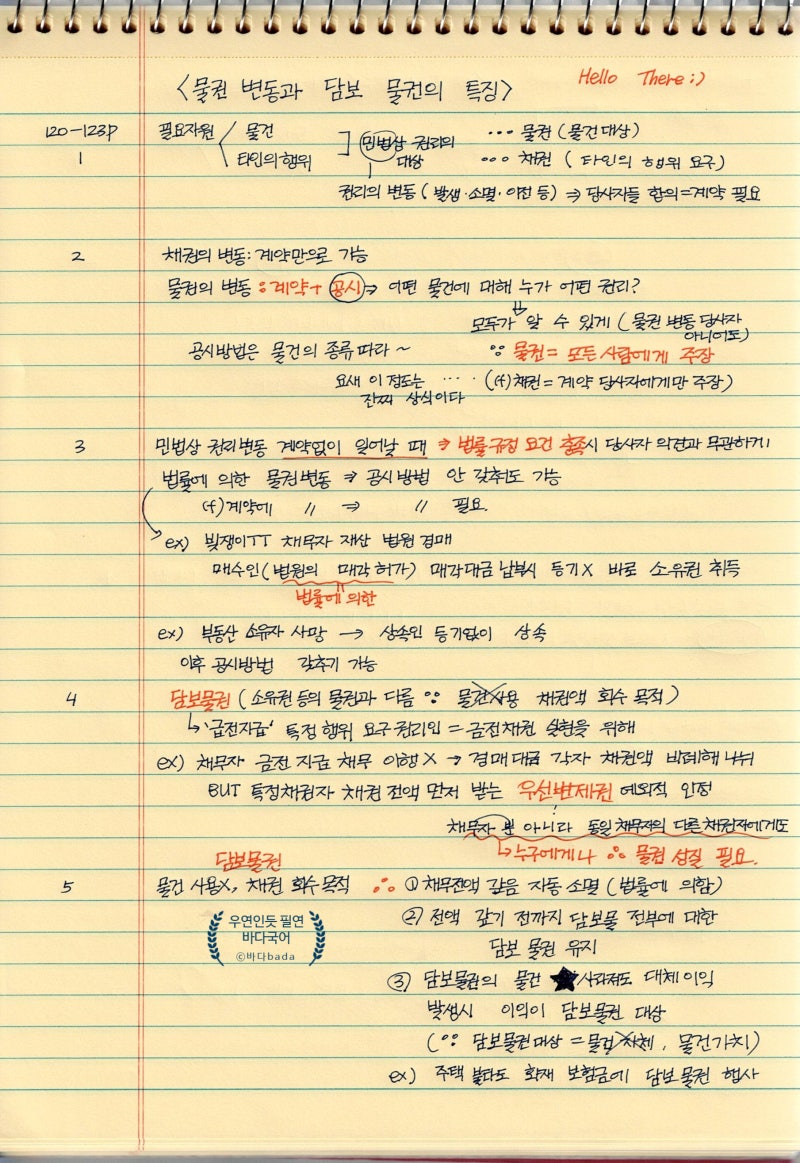 Hello There :)
<물권 변동과 담보 물권의 특징>
120-123p
1 필요자원 < 물건 ] 민법상 권리의 … 물권 (물건대상)
타인의 행위 대상 … 채권 (타인의 행위 요구)
권리의 변동 (발생·소멸·이전 등) ⇒ 당사자들 합의=계약 필요
2 채권의 변동: 계약만으로 가능
물권의 변동: 계약+ 공시 ⇒ 어떤 물건에 대해 누가 어떤 권리?
⇓
모두가 알 수 있게 (물권 변동 당사자
아니어도)
공시방법은 물건의 종류따라 ~ ∵ 물권= 모든 사람에게 주장
요새 이 정도는 … (cf) 채권=계약 당사자에게만 주장)
진짜 상식이다
3 민법상 권리변동 계약없이 일어날 때 ⇒ 법률규정 요건 충족시 당사자 의견과 무관하게!
법률에 의한 물권변동 ⇒ 공시방법 안 갖춰도 가능
(cf) 계약에 〃 ⇒ 〃 필요.
ex) 빚쟁이TT 채무자 재산 법원 경매
매수인 (법원의 매각 허가) 매각대금 납부시 등기X 바로 소유권 취득
법률에 의한
ex) 부동산 소유자 사망 → 상속인 등기없이 상속
이후 공시방법 갖추기 가능
4 담보물권 (소유권 등의 물권과 다름 ∵ 물건사용 채권액 회수 목적)
↳ '금전지급' 특정 행위 요구 권리인 = 금전채권 실현을 위해
ex) 채무자 금전 지급 채무 이행 X → 경매대금 각자 채권액 비례해 나눠
BUT 특정채권자 채권 전액 먼저 받는 우선변제권 예외적 인정
채무자 뿐 아니라 동일 채무자의 다른 채권자에게도
↳누구에게나 ∴ 물권 성질 필요.
담보물권
5 물건 사용X, 채권 회수 목적 ∴ ① 채무전액 갚음 자동 소멸 (법률에 의함)
② 전액 갚기 전까지 담보물 전부에 대한
담보 물권 유지
③ 담보물권의 물건 ★ 사라져도 대체이익
발생시 이익이 담보물권 대상
(∵ 담보물권대상 = 물건 자체, 물건가치)
ex) 주택 불타도 화재 보험금에 담보물권 행사
우연인듯 필연
바다국어
ⓒ바다bada